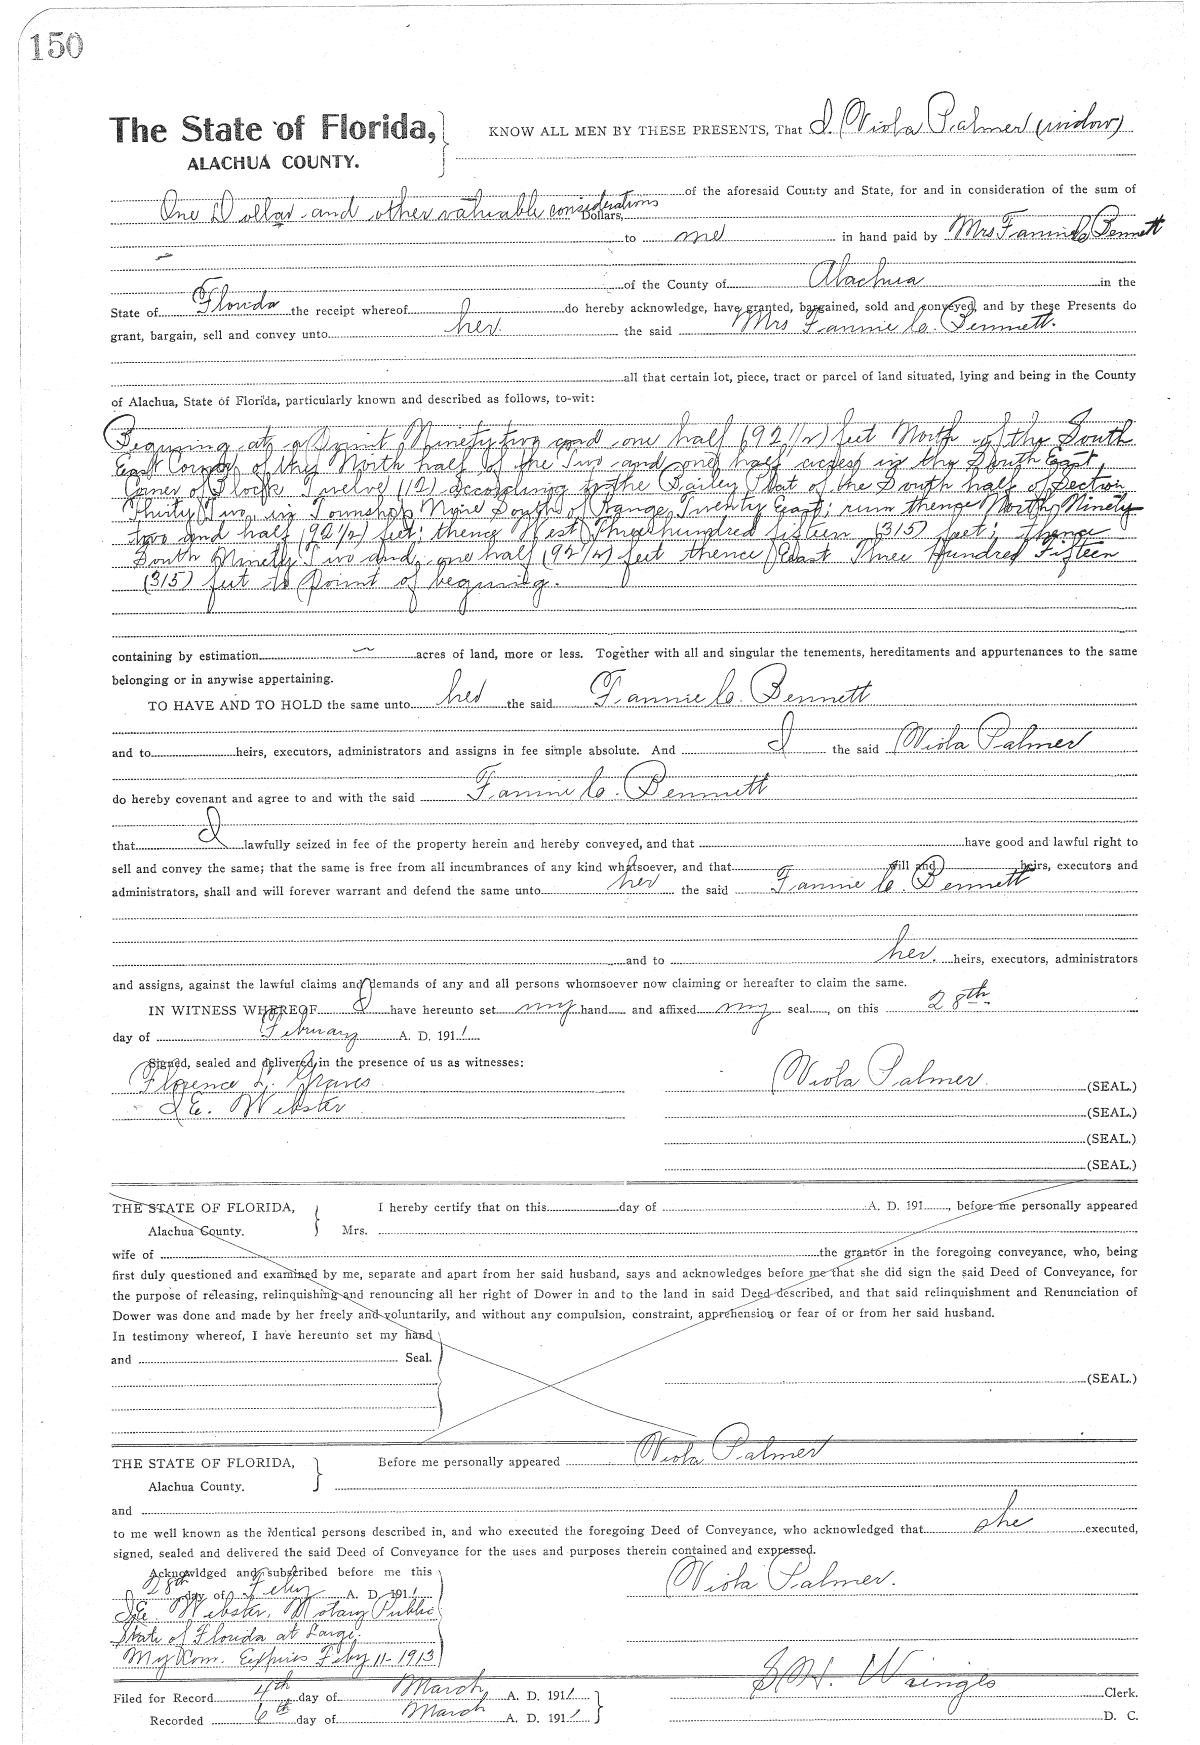 150
The State of Florida, KNOW ALL MEN BY THESE PRESENTS, That I, Viola Palmer (widow)
ALACHUA COUNTY.
of the aforesaid County and State, for and in consideration of the sum of
One Dollar and other valuable considerations Dollars,
to me in hand paid by Mrs Fannie C. Bennett
of the County of Alachua in the
State of Florida the receipt whereof do hereby acknowledge, have granted, bargained, sold and conveyed, and by these Presents do
grant, bargain, sell and convey unto her the said Mrs Fannie C. Bennett.
all that certain lot, piece, tract or parcel of land situated, lying and being in the County
of Alachua, State of Florida, particularly known and described as follows, to-wit:
Beginning at a Point Ninety two and one half (92 1/2) feet North of the South
East Corner of the North half of the Two and one half acres in the South East
Corner of Block Twelve (12) according to the Bailey Plat of the South half of Section
Thirty Two, in Township Nine South of Range Twenty East; run thence North Ninety
two and half (92 1/2) feet; thence West Three hundred fifteen (315) feet; thence
South Ninety Two and one half (92 1/2) feet thence East Three Hundred Fifteen
(315) feet to Point of beginning.
containing by estimation acres of land, more or less. Together with all and singular the tenements, hereditaments and appurtenances to the same
belonging or in anywise appertaining.
TO HAVE AND TO HOLD the same unto her the said Fannie C. Bennett
and to heirs, executors, administrators and assigns in fee simple absolute. And I the said Viola Palmer
do hereby covenant and agree to and with the said Fannie C. Bennett
that I lawfully seized in fee of the property herein and hereby conveyed, and that have good and lawful right to
sell and convey the same; that the same is free from all incumbrances of any kind whatsoever, and that will and heirs, executors and
administrators, shall and will forever warrant and defend the same unto her the said Fannie C. Bennett
and to her heirs, executors, administrators
and assigns, against the lawful claims and demands of any and all persons whomsoever now claiming or hereafter to claim the same.
IN WITNESS WHEREOF I have hereunto set my hand and affixed my seal, on this 28th
day of February A. D. 1911
Signed, sealed and delivered in the presence of us as witnesses:
Florence L. Graves Viola Palmer (SEAL.)
I E. Webster (SEAL.)
(SEAL.)
(SEAL.)
THE STATE OF FLORIDA, I hereby certify that on this day of A. D. 191 , before me personally appeared
Alachua County. Mrs.
wife of the grantor in the foregoing conveyance, who, being
first duly questioned and examined by me, separate and apart from her said husband, says and acknowledges before me that she did sign the said Deed of Conveyance, for
the purpose of releasing, relinquishing and renouncing all her right of Dower in and to the land in said Deed described, and that said relinquishment and Renunciation of
Dower was done and made by her freely and voluntarily, and without any compulsion, constraint, apprehension or fear of or from her said husband.
In testimony whereof, I have hereunto set my hand
and Seal.
(SEAL.)
THE STATE OF FLORIDA, Before me personally appeared Viola Palmer
Alachua County.
and
to me well known as the identical persons described in, and who executed the foregoing Deed of Conveyance, who acknowledged that she executed,
signed, sealed and delivered the said Deed of Conveyance for the uses and purposes therein contained and expressed.
Acknowldged and subscribed before me this
28th day of Feby A. D. 1911 Viola Palmer.
I.E. Webster, Notary Public
State of Florida at Large.
My Com. Expires Feby 11-1913
Filed for Record 4th day of March A. D. 1911 S. H. Wienges Clerk.
Recorded 6th day of March A. D. 1911 D. C.